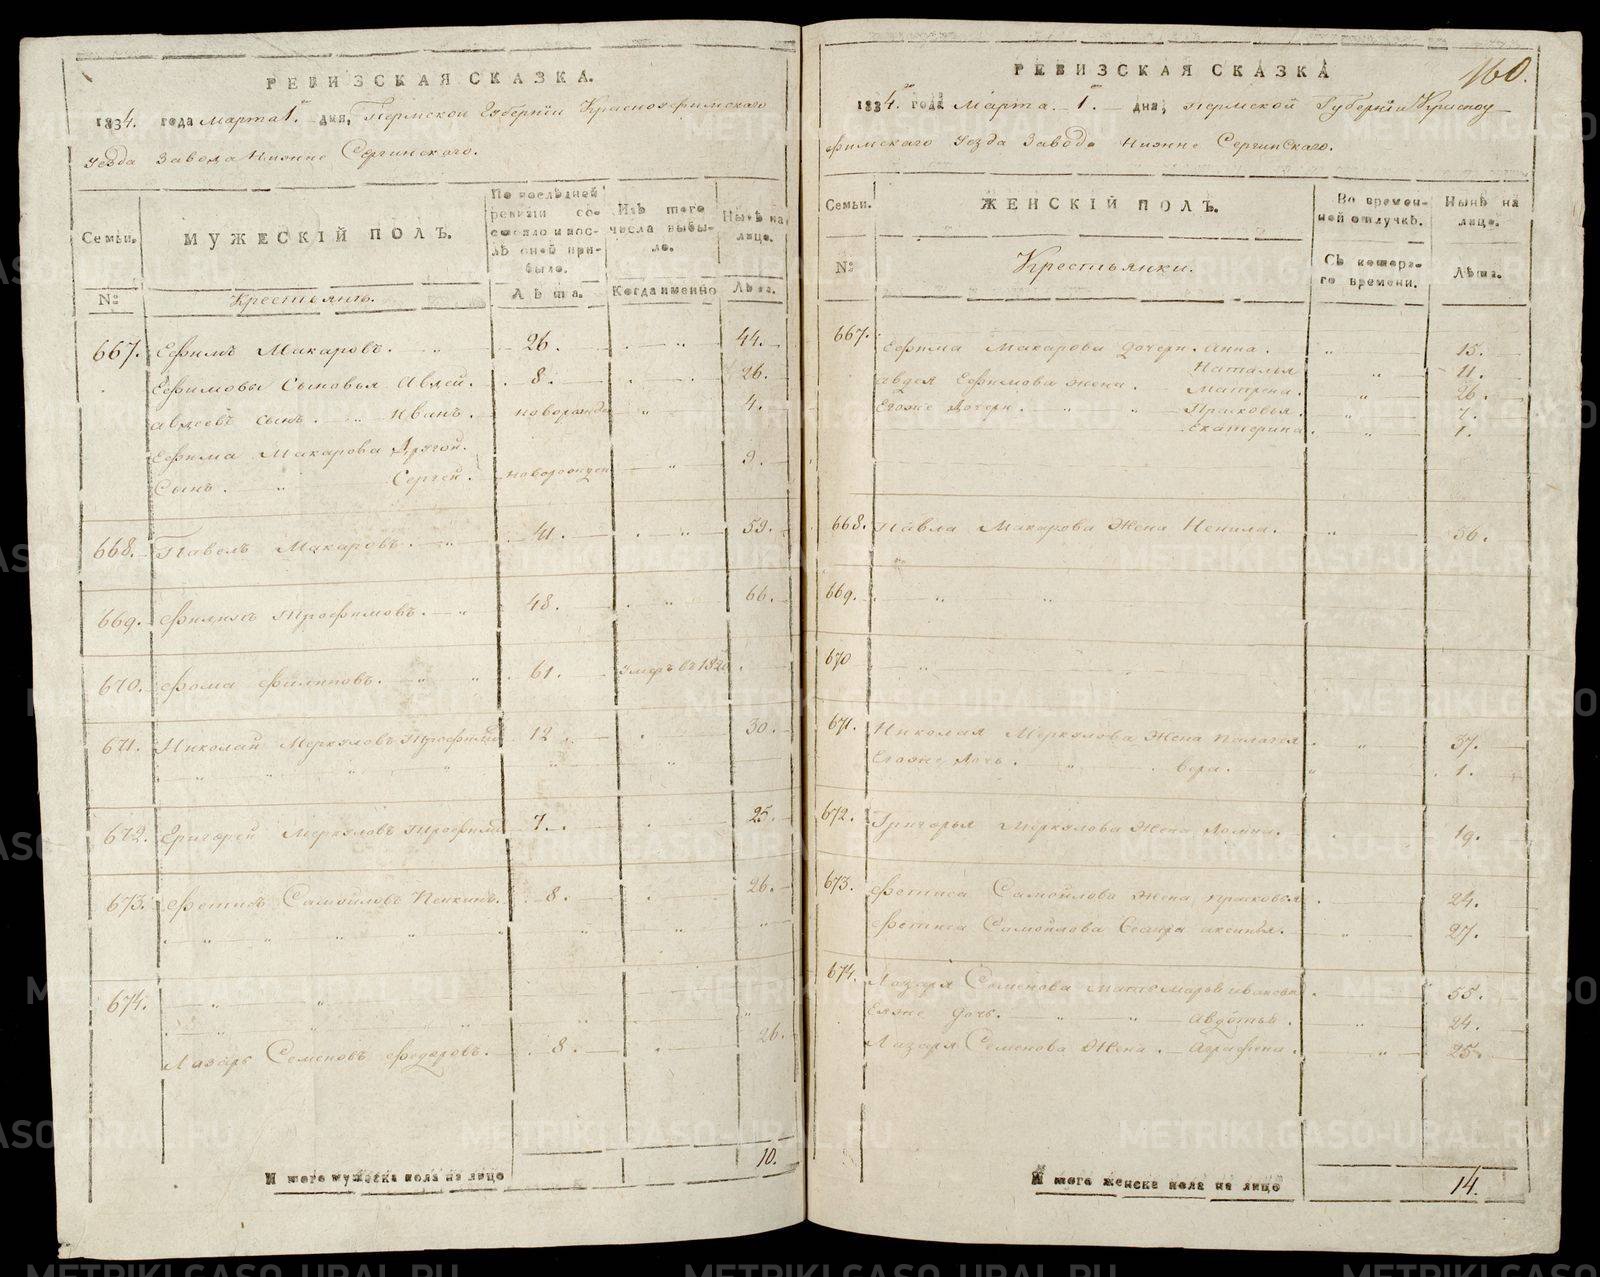 РЕВИЗСКАЯ СКАЗКА.
1834. года Марта 1. дня, Пермской Губернiи Красноуфимскаго
Уезда Завода Нижне Сергинскаго.
Семьи.
№:
МУЖЕСКІЙ ПОЛЪ.
Крестьянъ.
По послѣдней ревизіи состояло и послѣ оной прибыло.
Лѣта.
Изъ того числа выбыло.
Когда именно
Нынѣ на лице.
Лѣта.
667. Ефимъ Макаровъ. 26. 44.
Ефимовы Сыновья Авдей. 8. 26.
Авдеевъ сынъ. Иванъ. новорожде 4.
Ефима Макарова Другой.
Сынъ. Сергей. новорожден 9.
668. Павелъ Макаровъ. 41. 59.
669. Филипъ Трофимовъ. 48. 66.
670. Фома Филиповъ. 61. Умеръ въ 1820
671. Николай Меркуловъ Трофимовъ 12. 30.
672. Григорей Меркуловъ Трофимов 7. 25.
673. Фетисъ Самойловъ Пенкинъ. 8. 26.
674.
Лазарь Семеновъ Федоровъ. 8. 26.
И того мужеска пола на лицо 10.
160.
РЕВИЗСКАЯ СКАЗКА
1834. года Марта. 1. дня, Пермской Губернiи Красноу
фимскаго Уезда Завода Нижне Сергинскаго.
Семьи.
№:
ЖЕНСКІЙ ПОЛЪ.
Крестьянки.
Во временной отлучкѣ.
Съ котораго времени.
Нынѣ на лице.
Лѣта.
667. Ефима Макарова дочери. Анна. 15.
Наталья 11.
Авдея Ефимова жена. Матрена. 26.
Егоже Дочери. Прасковья. 7.
Екатерина. 1.
668. Павла Макарова Жена Ненила. 56.
669.
670
671. Николая Меркулова Жена Палагея 37.
Егоже Дочь. Вера. 1.
672. Григорья Меркулова Жена Домна. 19.
673. Фетиса Самойлова Жена Прасковья 24.
Фетиса Самойлова Сестра Аксинья. 27.
674. Лазаря Семенова Мать Марья Иванова 55.
Еяже Дочь. Авдотья. 24.
Лазаря Семенова Жена. Аграфена. 25.
И того женска пола на лицо 14.
METRIKI.GASO-URAL.RU